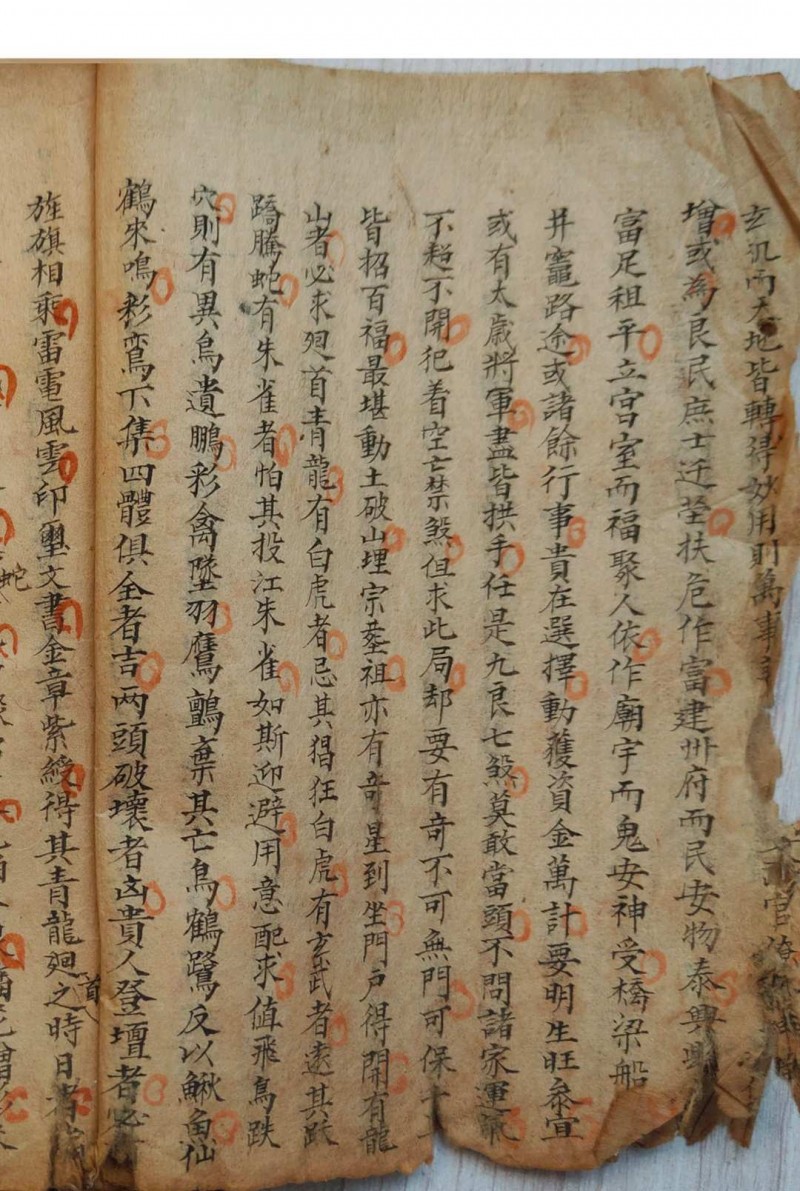 玄机而天地皆轉得妙用則萬事
官
增或為良民庶士迁塋扶危作富建州府而民安物泰興
富足祖平立宫室而福聚人依作廟宇而鬼安神受橋梁船
井竈路途或諸餘行事貴在選擇動獲資金萬計要明生旺叅宜
或有太歳將軍盡皆拱手任是九良七煞莫敢當頭不問諸家運氣
不超不開犯着空亡禁煞但求此局却要有竒不可無門可保十
皆招百福最堪動土破山埋宗塟祖亦有竒星到坐門户得開有龍
山者必求廻首青龍有白虎者忌其猖狂白虎有玄武者遠其跃
蹻騰蛇有朱雀者怕其投江朱雀如斯迎避用意配求值飛鳥跌
穴則有異鳥遺鵬彩禽墜羽鷹鸇棄其亡鳥鶴鷺反以鰍魚仙
鶴來鳴彩鸞下集四體俱全者吉两頭破壞者凶貴人登壇者必
旌旗相乘雷電風雲印璽文書金章紫綬得其青龍廻首之時日者
蛇